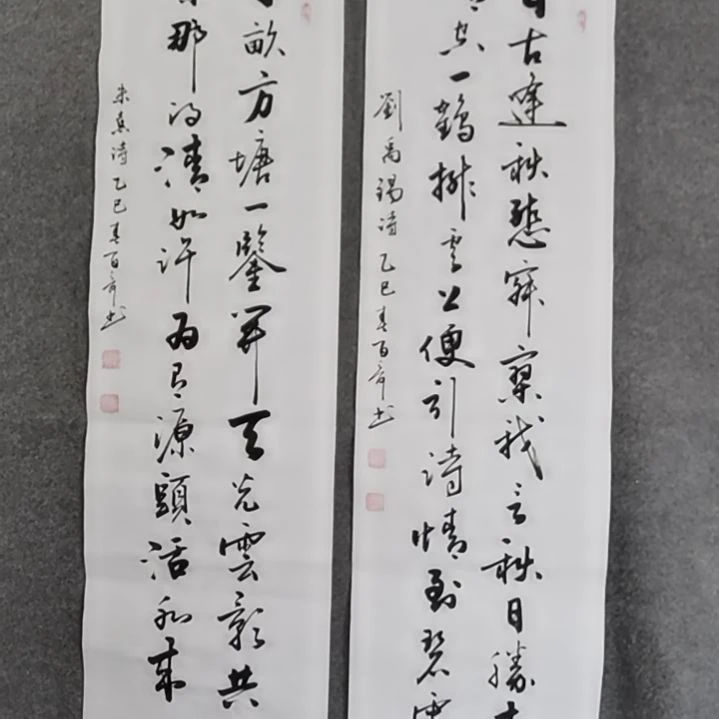 古逢秋悲寂寥我言秋日勝
空一鶴排雲上便引詩情到碧
劉禹錫詩 乙巳春百奇书
畝方塘一鑒開天光雲影共
那得清如许為有源頭活水來
朱熹詩 乙巳春百奇书